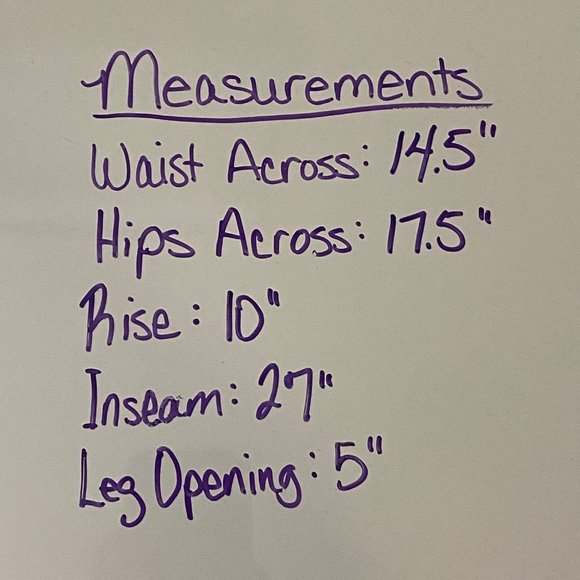 Measurements
Waist Across: 14.5"
Hips Across: 17.5"
Rise: 10"
Inseam: 27"
Leg Opening: 5"